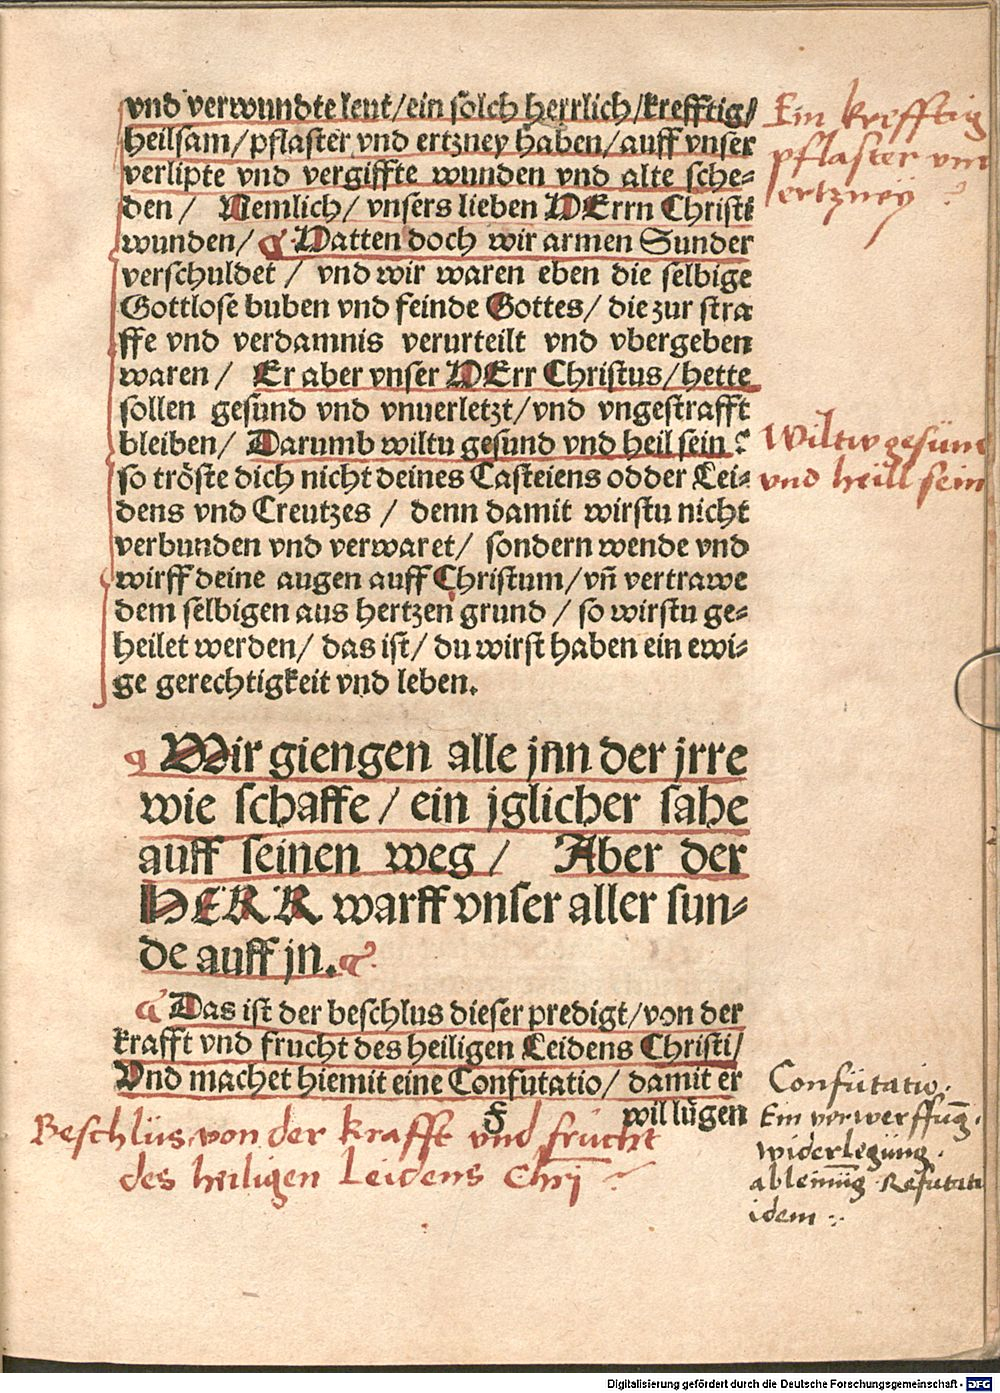 vnd verwundte leut/ein solch herrlich/krefftig/
heilsam/pflaster vnd ertzney haben/auff vnser
verlipte vnd vergiffte wunden vnd alte sche-
den/ Nemlich/ vnsers lieben HErrn Christi
wunden/ Hatten doch wir armen Sunder
verschuldet / vnd wir waren eben die selbige
Gottlose buben vnd feinde Gottes/ die zur stra
ffe vnd verdamnis verurteilt vnd vbergeben
waren/ Er aber vnser HErr Christus/hette
sollen gesund vnd vnuerletzt/vnd vngestrafft
bleiben/ Darumb wiltu gesund vnd heil sein?
so tröste dich nicht deines Casteiens odder Lei-
dens vnd Creutzes / denn damit wirstu nicht
verbunden vnd verwaret/ sondern wende vnd
wirff deine augen auff Christum/vñ vertrawe
dem selbigen aus hertzen grund / so wirstu ge-
heilet werden/ das ist/ du wirst haben ein ewi-
ge gerechtigkeit vnd leben.
Ein krefftig
pflaster vnd
ertzneÿ
Wiltw gesünd
vnd heÿll sein
Wir giengen alle jnn der jrre
wie schaffe/ ein jglicher sahe
auff seinen weg/ Aber der
HERR warff vnser aller sun-
de auff jn.
Das ist der beschlus dieser predigt/von der
krafft vnd frucht des heiligen Leidens Christi/
Vnd machet hiemit eine Confutatio/ damit er
F will lügen
Confütatio.
Ein verwerffūg.
widerlegüng.
ableinūg. Refutatio
idem
Beschlüs von der krafft vnd frücht
des heiligen Leidens Chrī
Digitalisierung gefördert durch die Deutsche Forschungsgemeinschaft - DFG